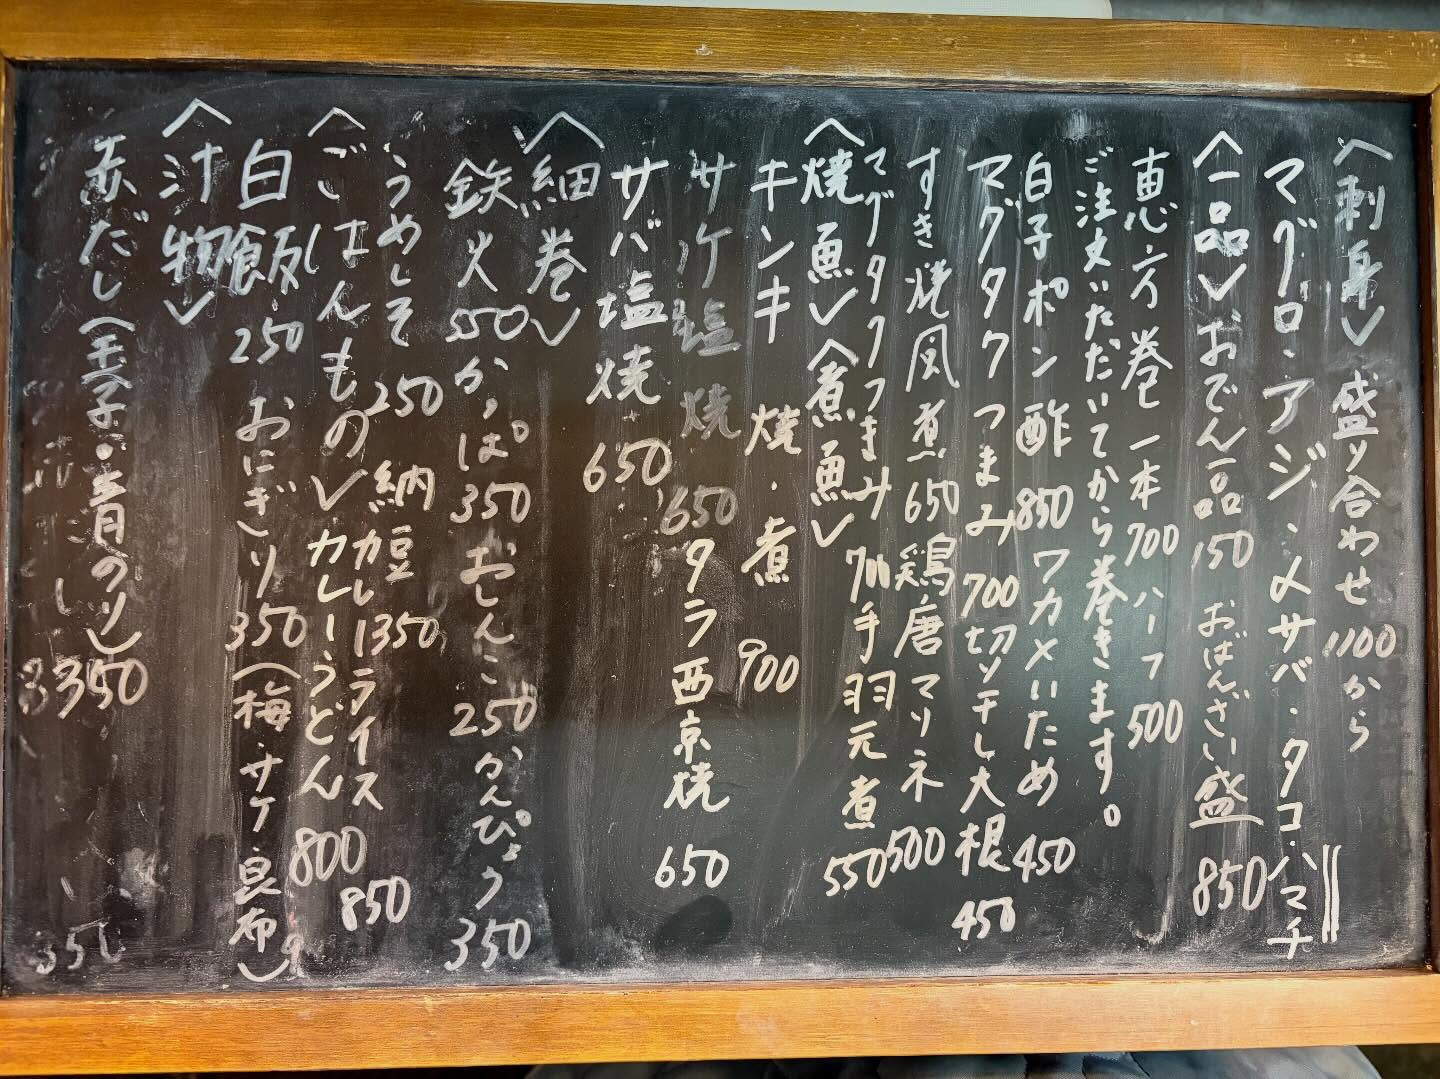 〈刺身〉盛り合わせ1100から
マグロ・アジ・〆サバ・タコ・ハマチ
〈一品〉おでん一品150 おばんざい盛850
恵方巻一本700ハーフ500
ご注文いただいてから巻きます。
白子ポン酢850ワカメいため450
マグタクつまみ700切り干し大根450
すき焼風煮650鶏唐マリネ500
マグタクつまみ 手羽元煮550
〈焼魚〉〈煮魚〉
キンキ 焼・煮 900
サケ塩焼650タラ西京焼650
サバ塩焼650
〈細巻〉
鉄火550かっぱ350おしんこ250かんぴょう350
うめしそ250納豆350
〈ごはんもの〉カレーライス850
カレーうどん800
白飯・250おにぎり350(梅・サケ・昆布)
〈汁物〉
赤だし(玉子・青のり)350